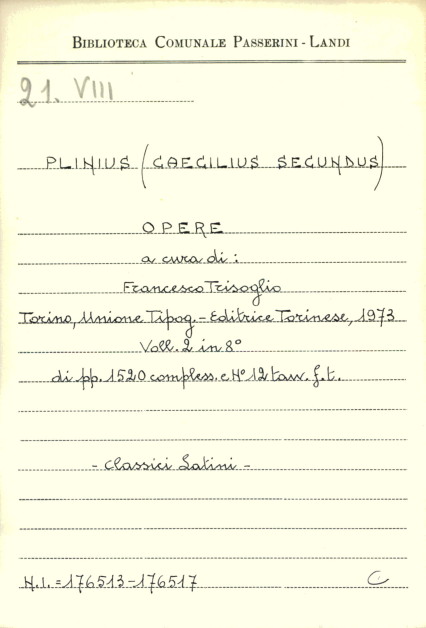 BIBLIOTECA COMUNALE PASSERINI - LANDI
21. VIII
PLINIUS (CAECILIUS SECUNDUS)
OPERE
a cura di :
Francesco Trisoglio
Torino, Unione Tipog. - Editrice Torinese, 1973
Voll. 2 in 8°
di pp. 1520 compless. e N° 12 tav. f.t.
- Classici Latini -
N.I. = 176513-176517 C